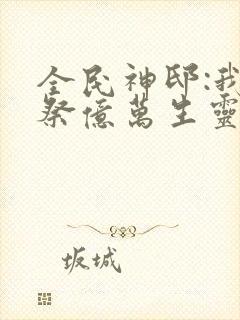 全民神邸:我
祭億萬生靈
坂城